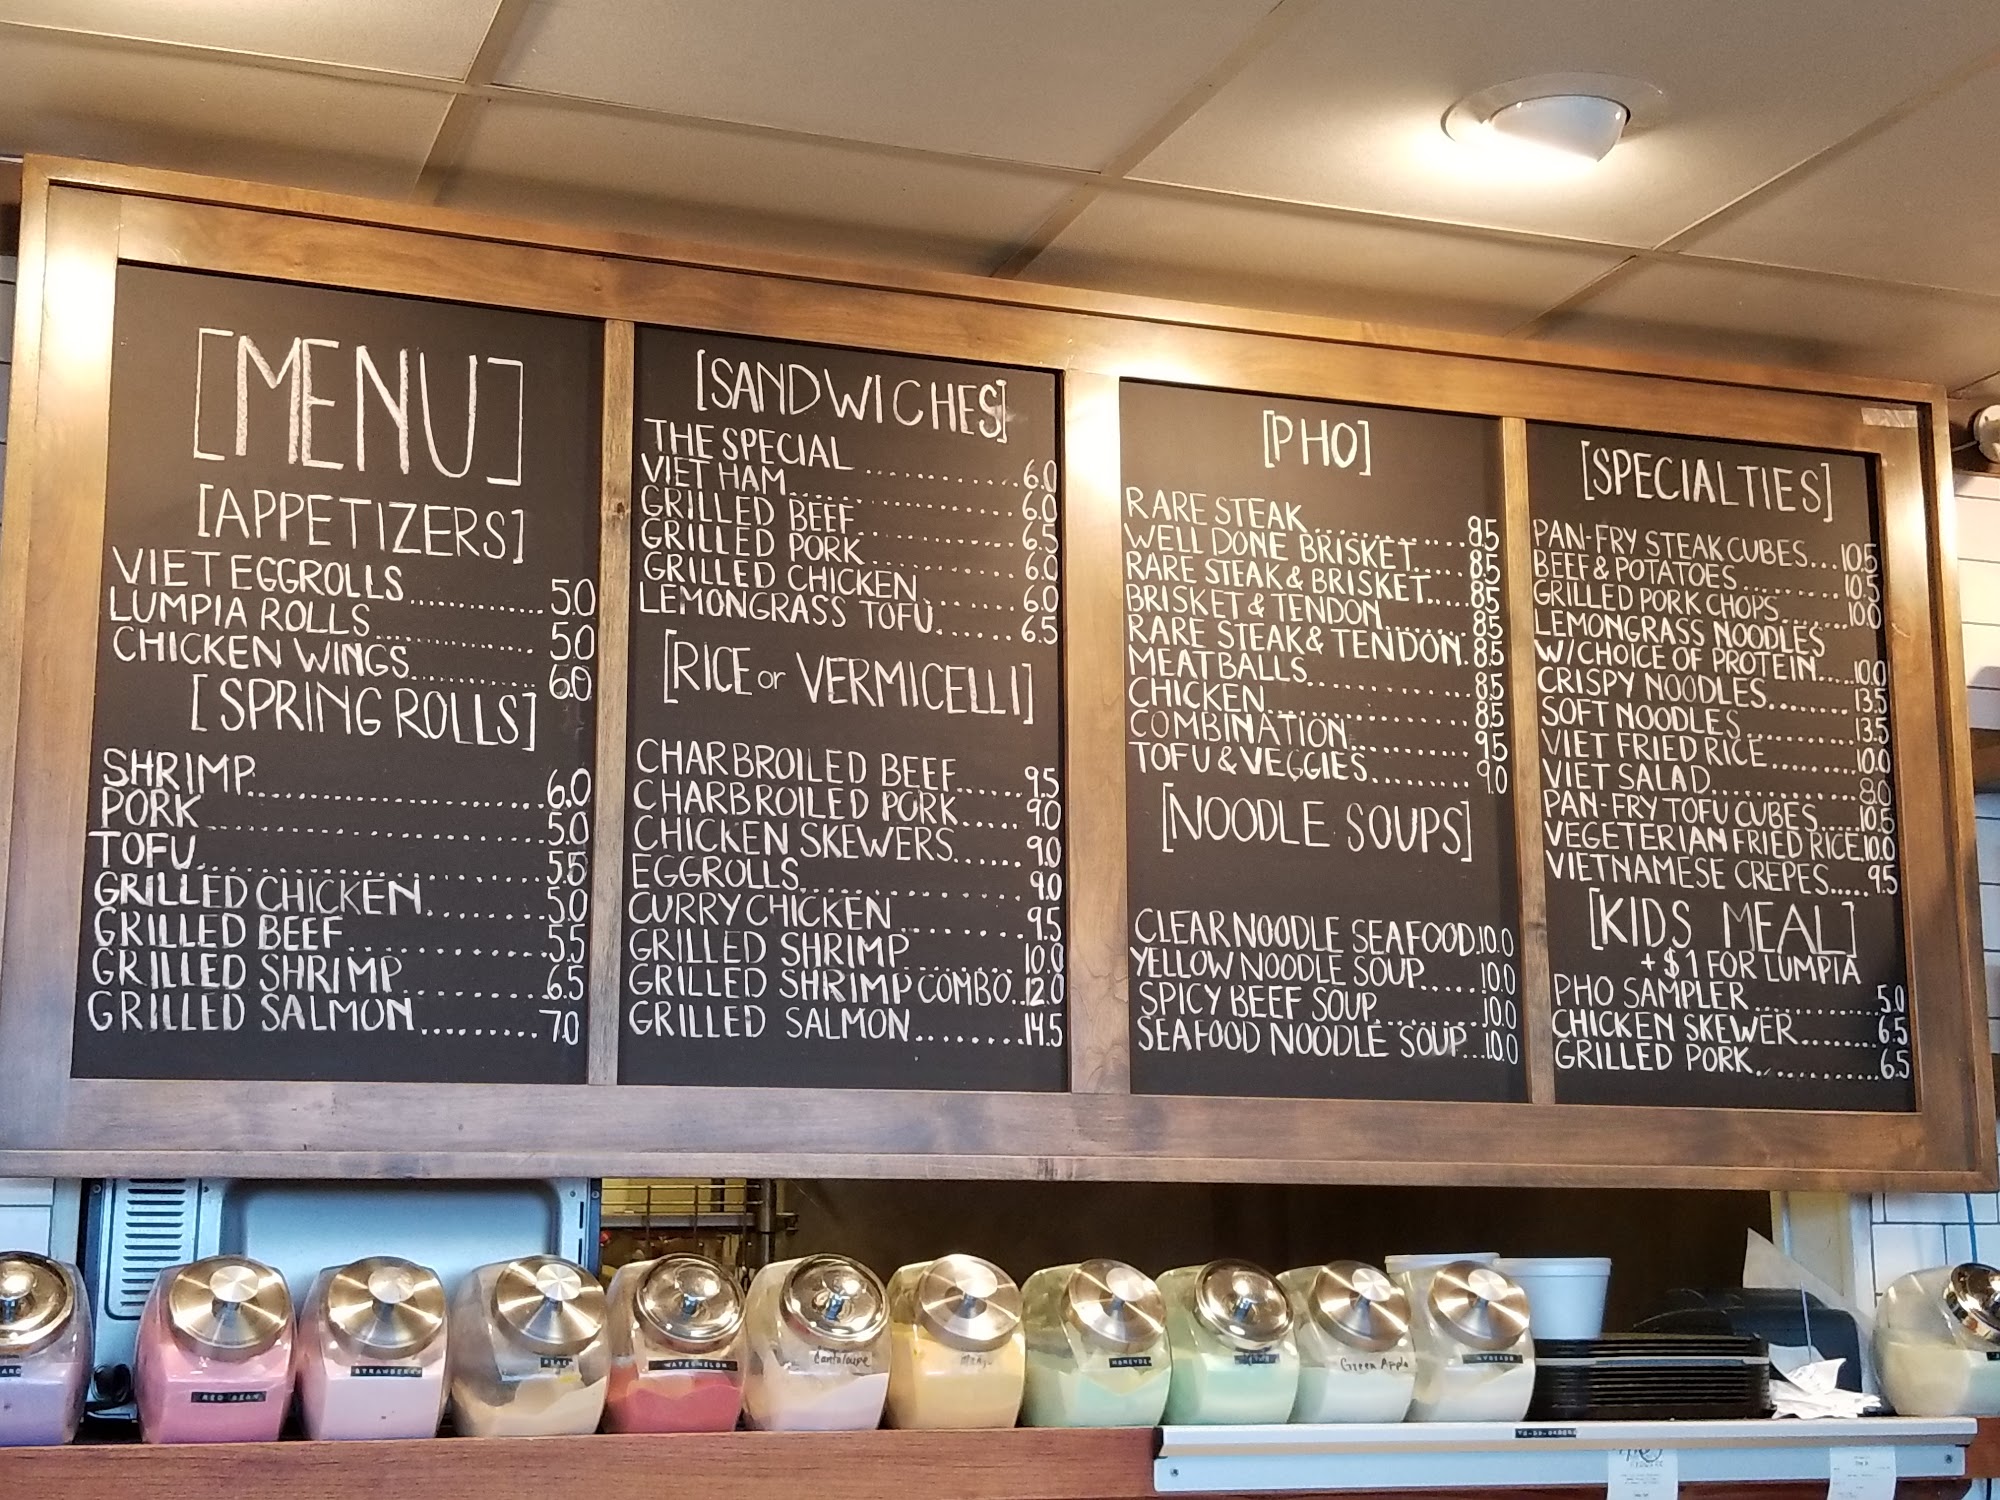 [MENU]
[APPETIZERS]
VIET EGGROLLS............. 5.0
LUMPIA ROLLS............. 5.0
CHICKEN WINGS............. 6.0
[SPRING ROLLS]
SHRIMP......................6.0
PORK......................5.0
TOFU......................5.5
GRILLED CHICKEN.........5.0
GRILLED BEEF.............5.5
GRILLED SHRIMP.........6.5
GRILLED SALMON.........7.0
[SANDWICHES]
THE SPECIAL............6.0
VIET HAM............6.0
GRILLED BEEF............6.5
GRILLED PORK............6.0
GRILLED CHICKEN.......6.0
LEMONGRASS TOFU......6.5
[RICE or VERMICELLI]
CHARBROILED BEEF.....9.5
CHARBROILED PORK.....9.0
CHICKEN SKEWERS......9.0
EGGROLLS............9.0
CURRY CHICKEN.........9.5
GRILLED SHRIMP.........10.0
GRILLED SHRIMP COMBO..12.0
GRILLED SALMON........14.5
[PHO]
RARE STEAK............8.5
WELL DONE BRISKET.....8.5
RARE STEAK & BRISKET.....8.5
BRISKET & TENDON.......8.5
RARE STEAK & TENDON.8.5
MEATBALLS............8.5
CHICKEN............8.5
COMBINATION.........9.5
TOFU & VEGGIES........9.0
[NOODLE SOUPS]
CLEAR NOODLE SEAFOOD.10.0
YELLOW NOODLE SOUP.....10.0
SPICY BEEF SOUP.........10.0
SEAFOOD NOODLE SOUP...10.0
[SPECIALTIES]
PAN-FRY STEAK CUBES...10.5
BEEF & POTATOES.........10.5
GRILLED PORK CHOPS.......10.0
LEMONGRASS NOODLES
W/CHOICE OF PROTEIN.....10.0
CRISPY NOODLES........13.5
SOFT NOODLES..........13.5
VIET FRIED RICE.........10.0
VIET SALAD............8.0
PAN-FRY TOFU CUBES.....10.5
VEGETERIAN FRIED RICE.10.0
VIETNAMESE CREPES.....9.5
[KIDS MEAL]
+ $1 FOR LUMPIA
PHO SAMPLER............5.0
CHICKEN SKEWER........6.5
GRILLED PORK............6.5
RED BEAN
STRAWBERRY
WATERMELON
Cantaloupe
HONEYDEW
Green Apple
AVOCADO
TO-GO-ORDERS